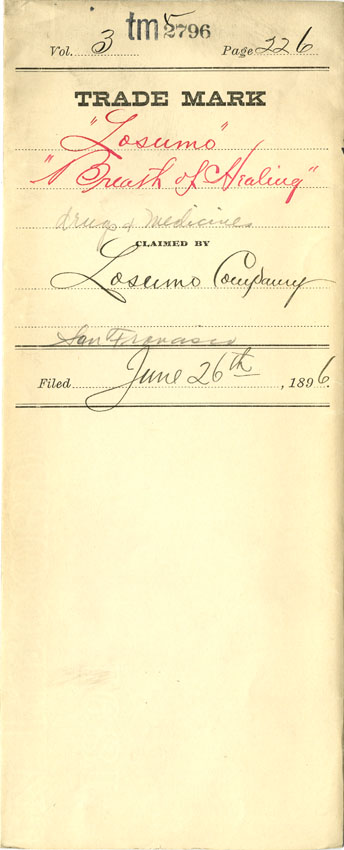 tm 2796
Vol. 3 Page 226
TRADE MARK
"Losumo"
"Breath of Healing"
drugs & medicines
CLAIMED BY
Losumo Company
San Francisco
Filed June 26th, 1896.